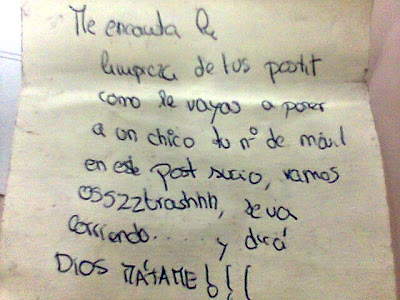 Me encanta la
limpieza de tus postit
como le vayas a poner
a un chico tu nº de móvil
en este post sucio, vamos
05522trashhh, se va
corriendo..... y dirá
DIOS MÁTAME!!!